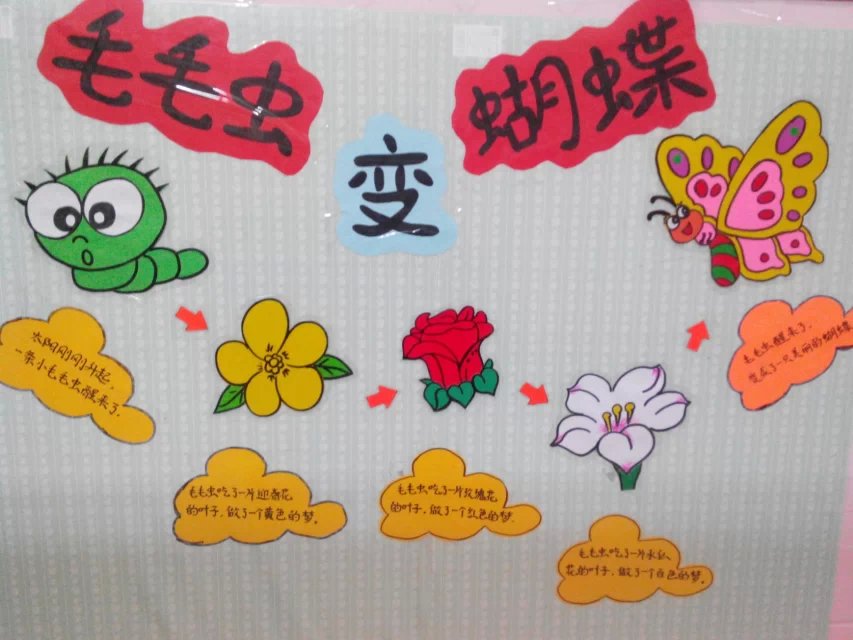 毛毛虫
变
蝴蝶
太阳刚刚升起,
一条小毛毛虫醒来了.
毛毛虫吃了一片迎春花
的叶子,做了一个黄色的梦.
毛毛虫吃了一片玫瑰花
的叶子,做了一个红色的梦.
毛毛虫吃了一片水仙
花的叶子,做了一个白色的梦.
毛毛虫醒来了,
变成了一只美丽的蝴蝶